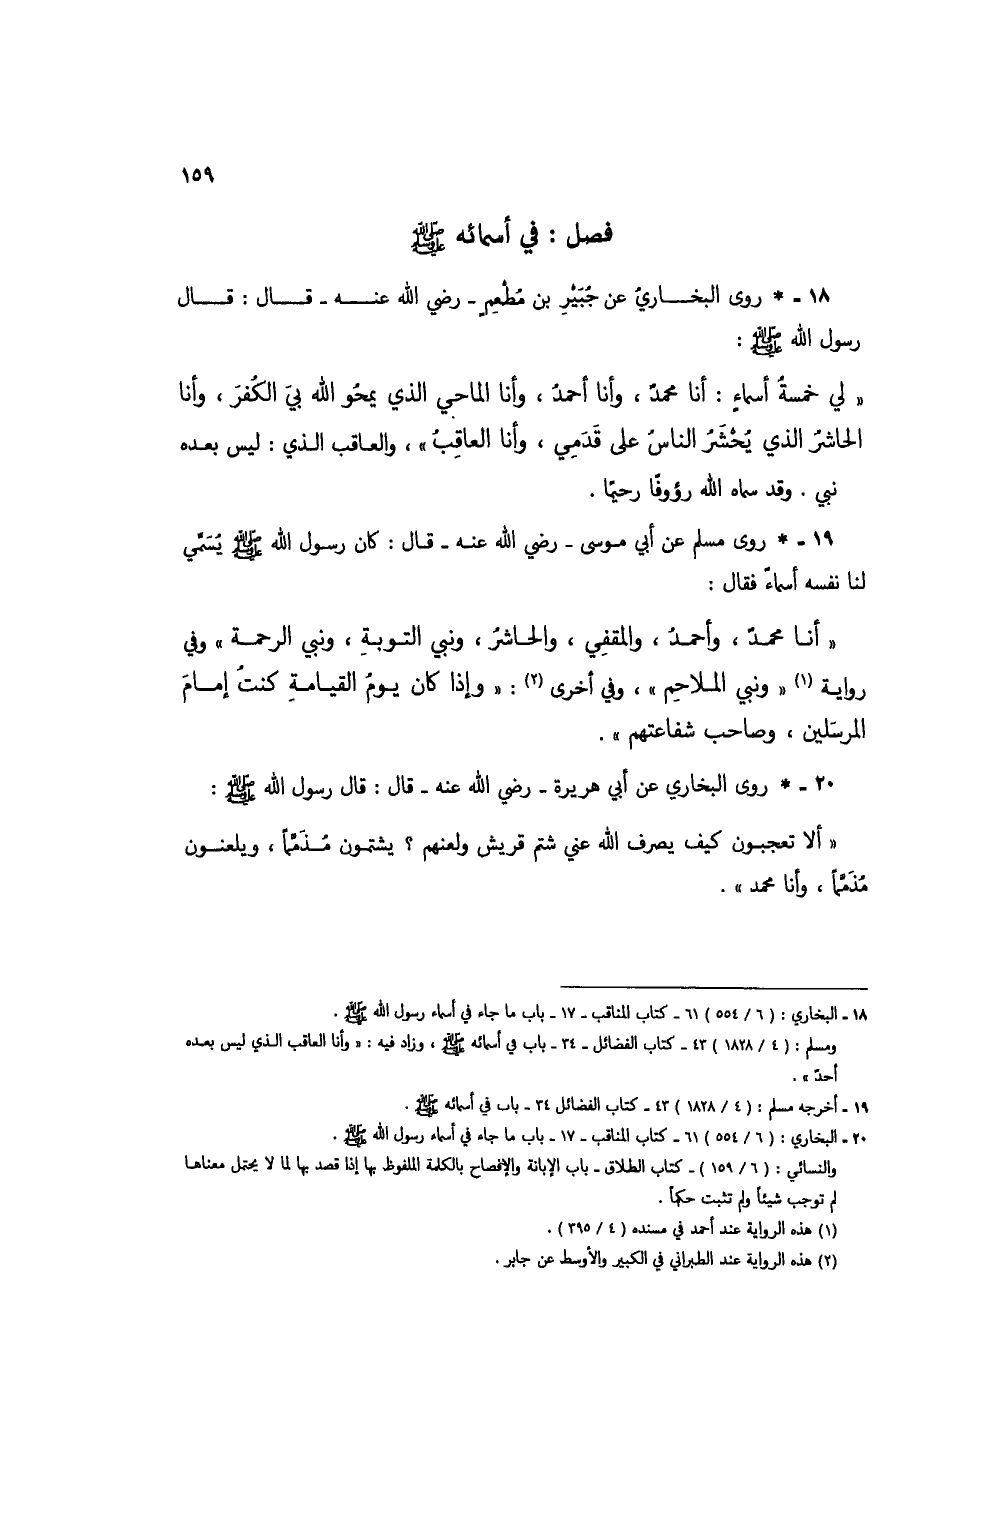 ١٥٩
فصل : في أسمائه ﷺ
١٨ ـ * روى البخـــاريُ عن جُبَيْرِ بن مُطْعِمٍ ـ رضي الله عنـــه ـ قـــال : قـــال
رسول الله ﷺ :
« لي خمسةُ أسماءٍ : أنا محمدٌ ، وأنا أحمدُ ، وأنا الماحي الذي يمحُو الله بيَ الكُفرَ ، وأنا
الحاشرُ الذي يُحْشَرُ الناسُ على قَدَمِي ، وأنا العاقِبُ » ، والعاقب الـذي : ليس بعـده
نبي . وقد سماه الله رؤوفًا رحيمًا .
١٩ ـ * روى مسلم عن أبي مـوسى ـ رضي الله عنـه ـ قـال : كان رسـول الله ﷺ يُسَمِّي
لنا نفسه أسماءً فقال :
« أنـا محمـدٌ ، وأحمـدُ ، والمقفِي ، والحـاشرُ ، ونبي التـوبـةِ ، ونبي الرحمـة » وفي
روايـة (١) « ونبي المـلاحِمِ » ، وفي أخرى (٢) : « وإذا كان يـومُ القيـامـةِ كنتُ إمـامَ
المرسَلين ، وصاحب شفاعتهم » .
٢٠ ـ * روى البخاري عن أبي هريرة ـ رضي الله عنه ـ قال : قال رسول الله ﷺ :
« ألا تعجبـون كيف يصرف الله عني شتم قريش ولعنهم ؟ يشتمـون مُـذَمَّماً ، ويلعنـون
مُذَمَّماً ، وأنا محمد » .
١٨ ـ البخاري : ( ٦ / ٥٥٤ ) ٦١ ـ كتاب المناقب ـ ١٧ ـ باب ما جاء في أسماء رسول الله ﷺ .
ومسلم : ( ٤ / ١٨٢٨ ) ٤٣ ـ كتاب الفضائل ـ ٣٤ ـ باب في أسمائه ﷺ ، وزاد فيه : « وأنا العاقب الـذي ليس بعـده
أحدٌ » .
١٩ ـ أخرجه مسلم : ( ٤ / ١٨٢٨ ) ٤٣ ـ كتاب الفضائل ٣٤ ـ باب في أسمائه ﷺ .
٢٠ ـ البخاري : ( ٦ / ٥٥٤ ) ٦١ ـ كتاب المناقب ـ ١٧ ـ باب ما جاء في أسماء رسول الله ﷺ .
والنسائي : ( ٦ / ١٥٩ ) ـ كتاب الطلاق ـ باب الإبانة والإفصاح بالكلمة الملفوظ بها إذا قصد بها لما لا يحتمل معناهـا
لم توجب شيئاً ولم تثبت حكماً .
(١) هذه الرواية عند أحمد في مسنده ( ٤ / ٣٩٥ ) .
(٢) هذه الرواية عند الطبراني في الكبير والأوسط عن جابر .